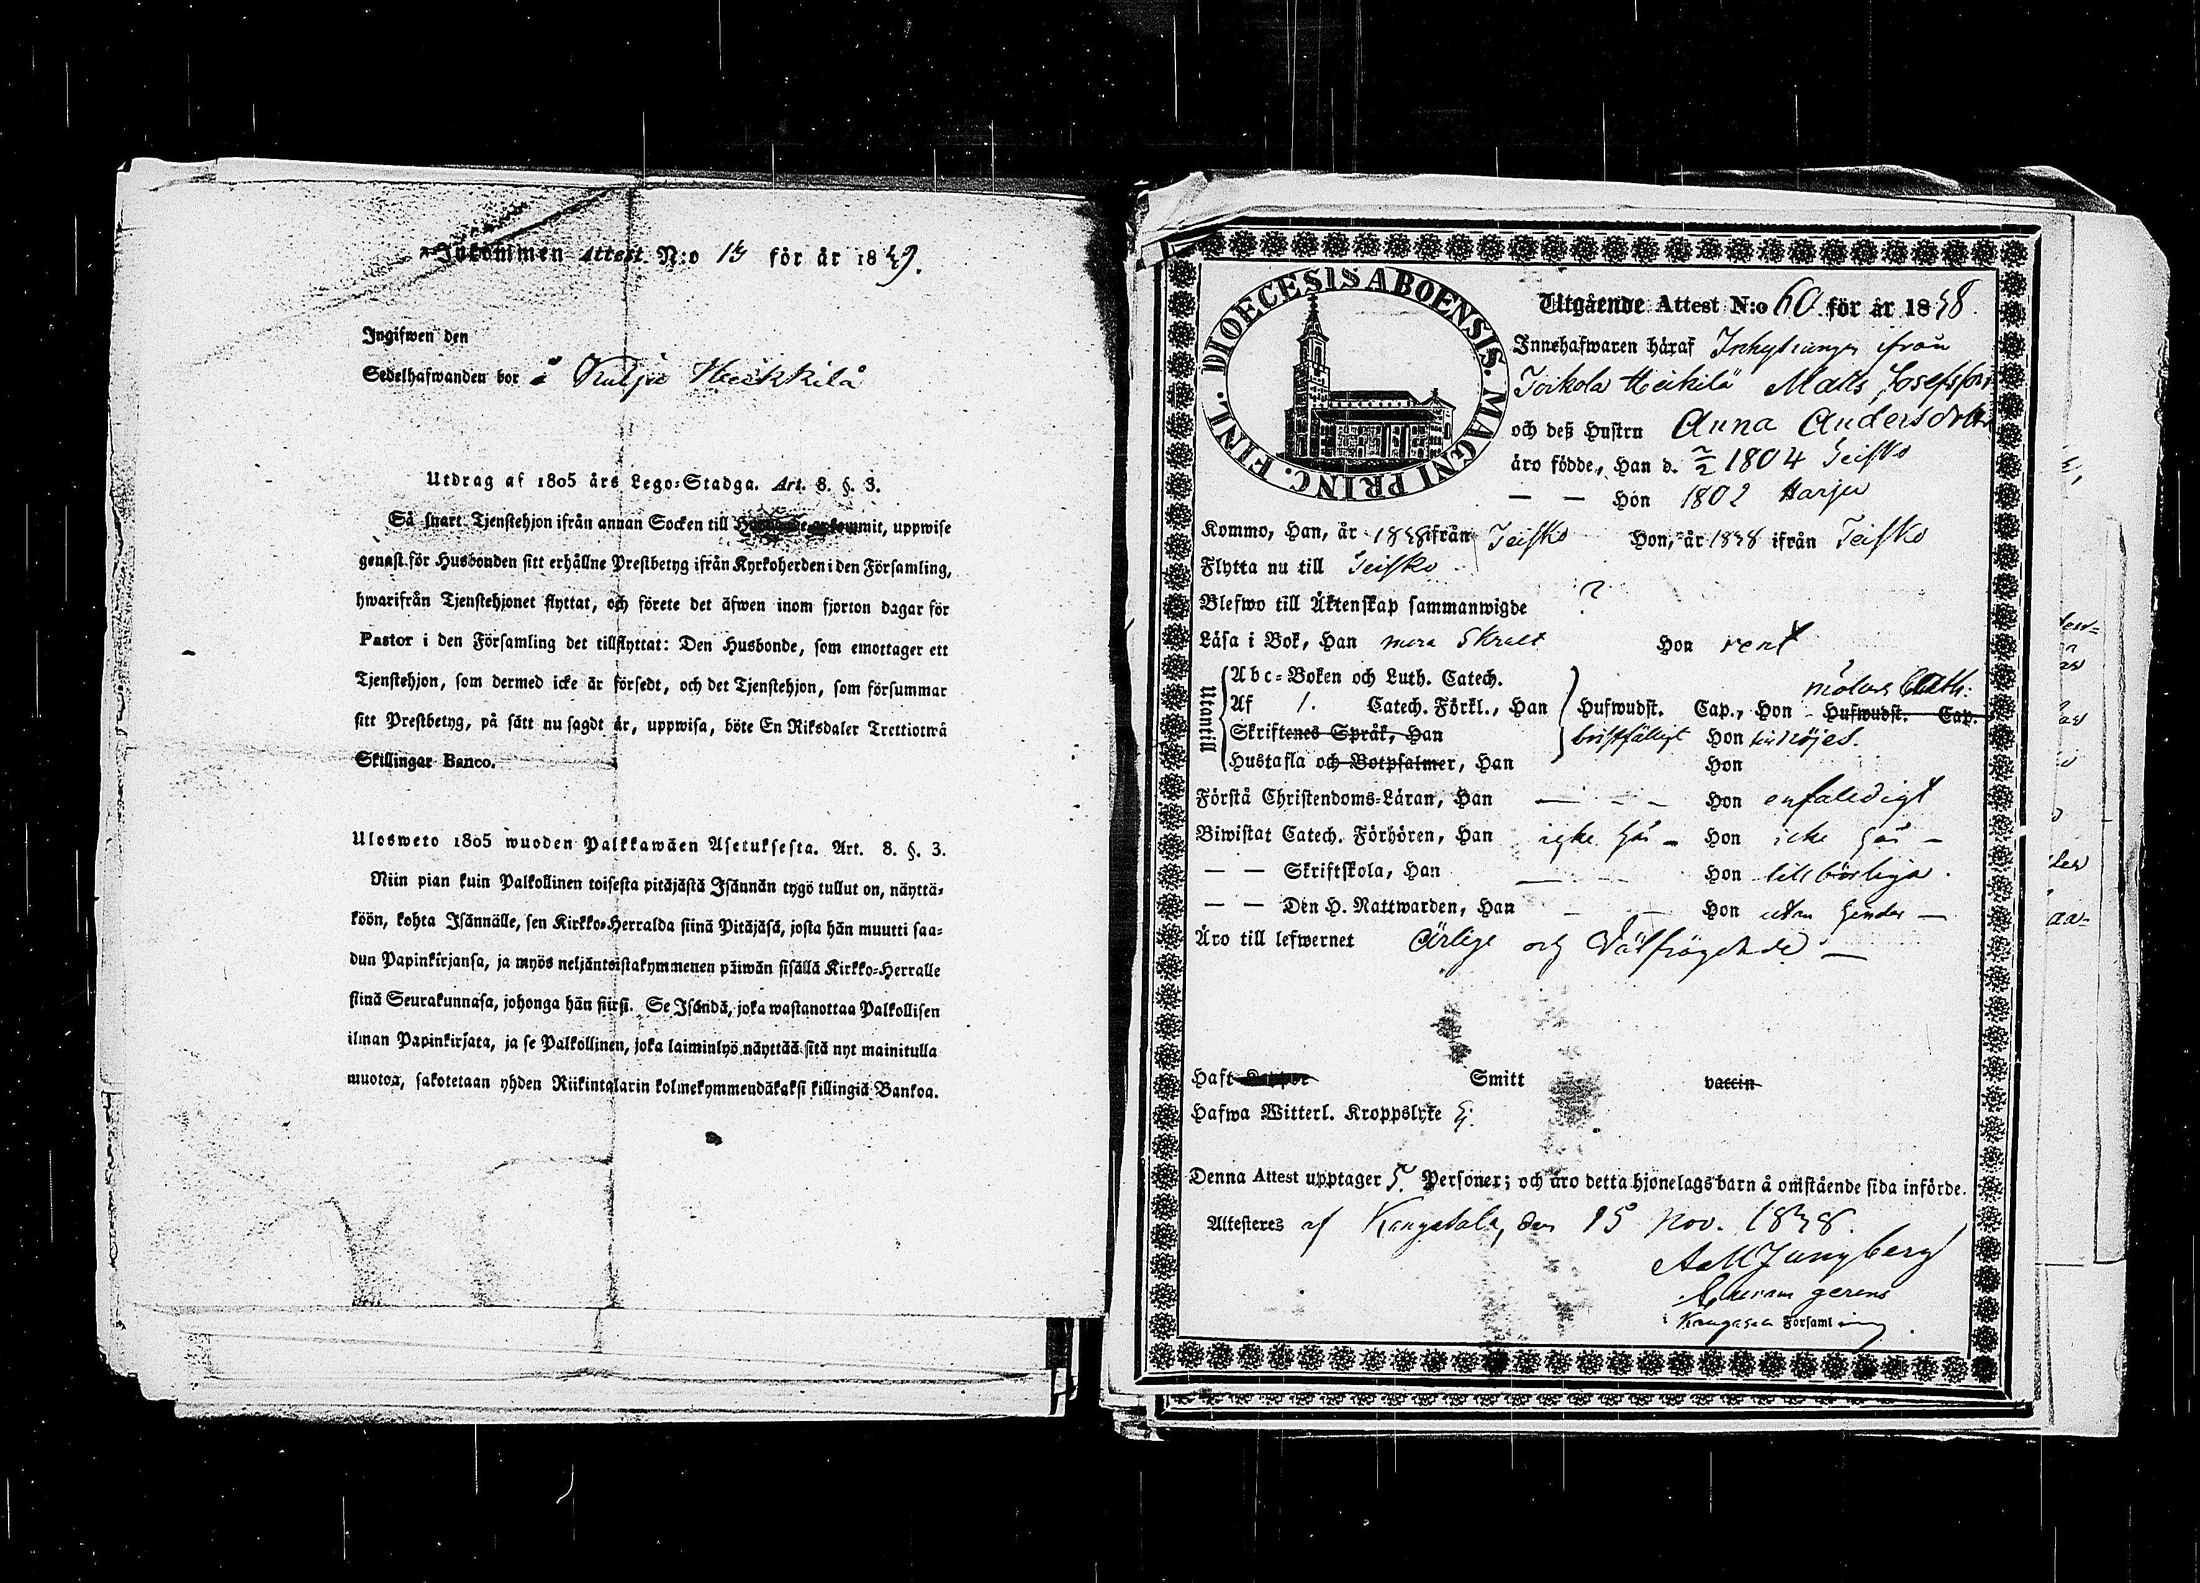 Inkommen Attest N:o 13 för år 1849.
Ingifwen den
Sedelhafwanden bor å Kulju Heikkilä
Utdrag af 1805 års Lego-Stadga. Art. 8. §. 3.
Så snart Tjenstehjon ifrån annan Socken till Husbonde ankommit, uppwise
genast för Husbonden sitt erhållne Prestbetyg ifrån Kyrkoherden i den Församling,
hwarifrån Tjenstehjonet flyttat, och förete det äfwen inom fjorton dagar för
Pastor i den Församling det tillflyttat: Den Husbonde, som emottager ett
Tjenstehjon, som dermed icke är försedt, och det Tjenstehjon, som försummar
sitt Prestbetyg, på sätt nu sagdt är, uppwisa, böte En Riksdaler Trettiotwå
Skillingar Banco.
Ulosweto 1805 wuoden Palkkawäen Asetuksesta. Art. 8. §. 3.
Niin pian kuin Palkollinen toisesta pitäjästä Isännän tygö tullut on, näyttä-
köön, kohta Isännälle, sen Kirkko-Herralda siinä Pitäjäsä, josta hän muutti saa-
dun Papinkirjansa, ja myös neljäntoistakymmenen päiwän sisällä Kirkko-Herralle
siinä Seurakunnasa, johonga hän siirsi. Se Isändä, joka wastanottaa Palkollisen
ilman Papinkirjata, ja se Palkollinen, joka laiminlyö näyttää sitä nyt mainitulla
muotoa, sakotetaan yhden Riikintalarin kolmekymmendäkaksi killingiä Bankoa.
DIOECESIS ABOENSIS. MAGNI PRINC. FINL.
Utgående Attest N:o 60 för år 1848.
Innehafwaren häraf Inhysungen ifrån
Toikola Heikilä Matts Josefsson
och deß Hustru Anna Andersdotter
äro födde, Han d. 2/2 1804 Teisko
— — Hon 1802 Harju
Kommo, Han, år 1838 ifrån Teisko Hon, år 1838 ifrån Teisko
Flytta nu till Teisko
Blefwo till Äktenskap sammanwigde ?
Läsa i Bok, Han mera Skralt Hon rent
Utantill
Abc-Boken och Luth. Catech. molus Cath:
Af 1. Catech. Förkl., Han Hufwudst. Cap., Hon - Hufwudst. Cap.
Skriftenes Språk, Han bristfälligt Hon
Hustafla och Botpsalmer, Han Hon
Förstå Christendoms-Läran, Han — - - Hon enfaldigt
Biwistat Catech. Förhören, Han icke hos — Hon icke hos —
— — Skriftskola, Han — - - Hon tillbörliga.
— — Den H. Nattwarden, Han - — Hon utan hinder —
Äro till lefwernet Ärlige och Välfrägdade —
Haft Koppor Smitt vaccin
Hafwa Witterl. Kroppslyte Ej.
Denna Attest upptager 5. Personer; och äro detta hjonelags barn å omstående sida införde.
Attesteres af Kangasala, den 15 Nov. 1848.
A M Ljungberg
Curam gerens
i Kangasala Församling